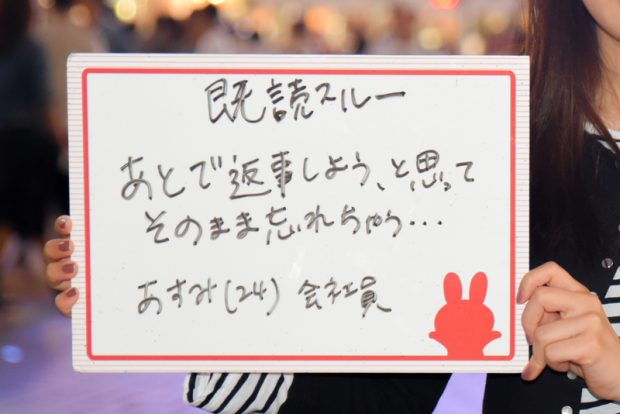 既読スルー
あとで返事しよう、と思って
そのまま忘れちゃう…
あすみ(24) 会社員